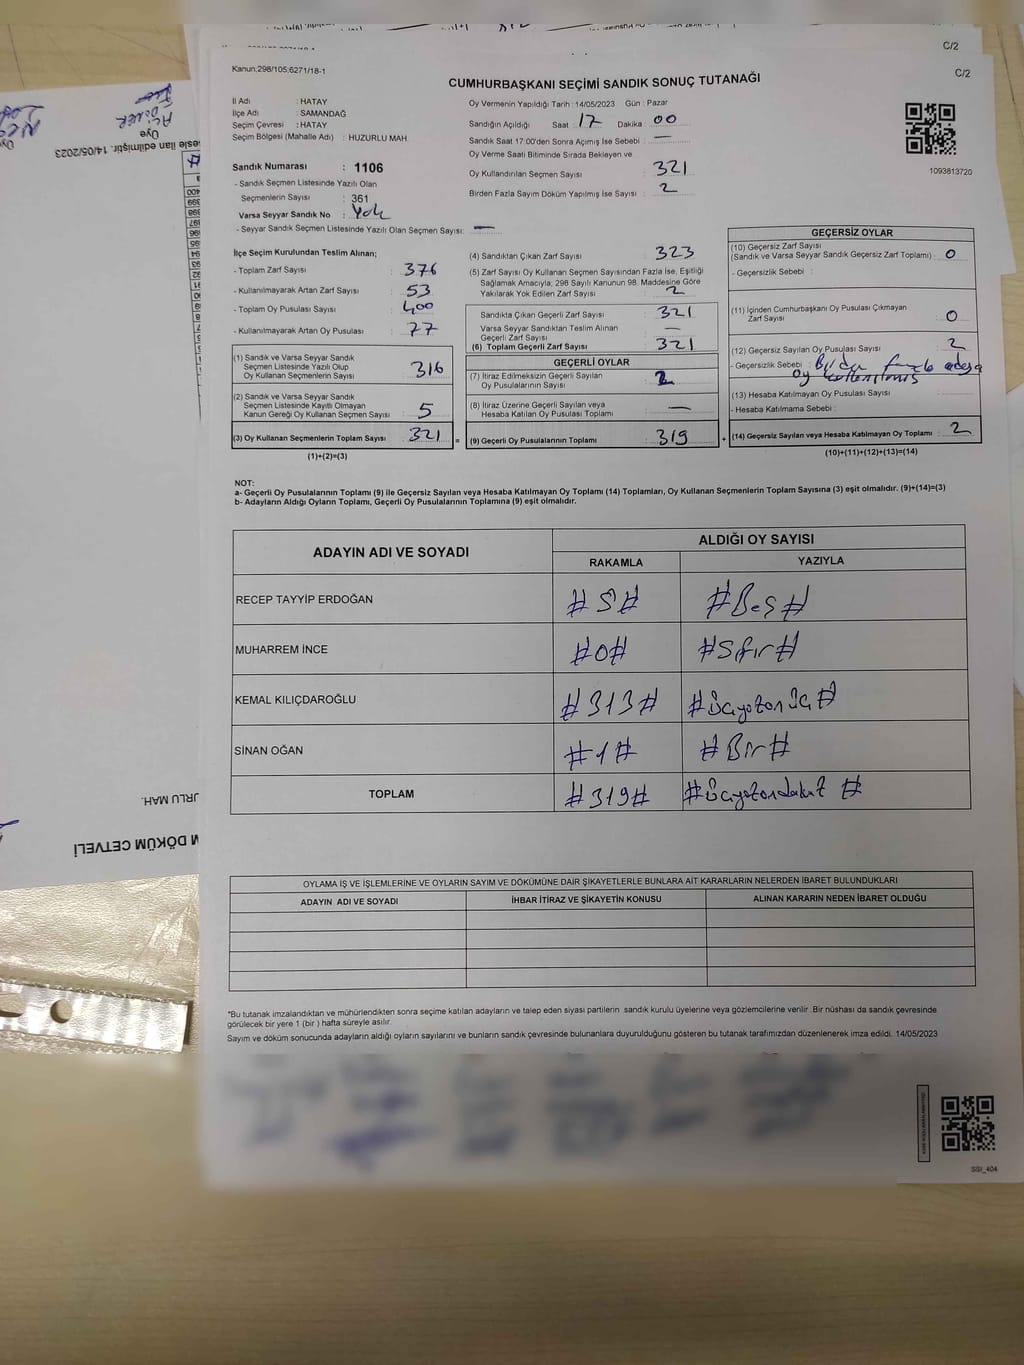 C/2
Kanun;298/105;6271/18-1
C/2
CUMHURBAŞKANI SEÇİMİ SANDIK SONUÇ TUTANAĞI
İl Adı : HATAY
İlçe Adı : SAMANDAĞ
Seçim Çevresi : HATAY
Seçim Bölgesi (Mahalle Adı) : HUZURLU MAH
Sandık Numarası : 1106
- Sandık Seçmen Listesinde Yazılı Olan
Seçmenlerin Sayısı : 361
Varsa Seyyar Sandık No : Yok
- Seyyar Sandık Seçmen Listesinde Yazılı Olan Seçmen Sayısı: —
Oy Vermenin Yapıldığı Tarih : 14/05/2023 Gün : Pazar
Sandığın Açıldığı Saat : 17 Dakika : 00
Sandık Saat 17:00'den Sonra Açımış İse Sebebi : —
Oy Verme Saati Bitiminde Sırada Bekleyen ve
Oy Kullandırılan Seçmen Sayısı : 321
Birden Fazla Sayım Döküm Yapılmış İse Sayısı : 2
1093813720
İlçe Seçim Kurulundan Teslim Alınan;
- Toplam Zarf Sayısı : 376
- Kullanılmayarak Artan Zarf Sayısı : 53
- Toplam Oy Pusulası Sayısı : 400
- Kullanılmayarak Artan Oy Pusulası : 77
(1) Sandık ve Varsa Seyyar Sandık
Seçmen Listesinde Yazılı Olup
Oy Kullanan Seçmenlerin Sayısı : 316
(2) Sandık ve Varsa Seyyar Sandık
Seçmen Listesinde Kayıtlı Olmayan
Kanun Gereği Oy Kullanan Seçmen Sayısı : 5
(3) Oy Kullanan Seçmenlerin Toplam Sayısı : 321 =
(1)+(2)=(3)
(4) Sandıktan Çıkan Zarf Sayısı : 323
(5) Zarf Sayısı Oy Kullanan Seçmen Sayısından Fazla İse, Eşitliği
Sağlamak Amacıyla, 298 Sayılı Kanunun 98. Maddesine Göre
Yakılarak Yok Edilen Zarf Sayısı : 2
Sandıkta Çıkan Geçerli Zarf Sayısı : 321
Varsa Seyyar Sandıktan Teslim Alınan
Geçerli Zarf Sayısı : —
(6) Toplam Geçerli Zarf Sayısı : 321
GEÇERLİ OYLAR
(7) İtiraz Edilmeksizin Geçerli Sayılan
Oy Pusulalarının Sayısı : 2
(8) İtiraz Üzerine Geçerli Sayılan veya
Hesaba Katılan Oy Pusulası Toplamı : —
(9) Geçerli Oy Pusulalarının Toplamı : 319 +
GEÇERSİZ OYLAR
(10) Geçersiz Zarf Sayısı
(Sandık ve Varsa Seyyar Sandık Geçersiz Zarf Toplamı) : 0
- Geçersizlik Sebebi :
(11) İçinden Cumhurbaşkanı Oy Pusulası Çıkmayan
Zarf Sayısı : 0
(12) Geçersiz Sayılan Oy Pusulası Sayısı : 2
- Geçersizlik Sebebi : Birden fazla adaya
oy kullanılmış
(13) Hesaba Katılmayan Oy Pusulası Sayısı :
- Hesaba Katılmama Sebebi :
(14) Geçersiz Sayılan veya Hesaba Katılmayan Oy Toplamı : 2
(10)+(11)+(12)+(13)=(14)
NOT:
a- Geçerli Oy Pusulalarının Toplamı (9) ile Geçersiz Sayılan veya Hesaba Katılmayan Oy Toplamı (14) Toplamları, Oy Kullanan Seçmenlerin Toplam Sayısına (3) eşit olmalıdır. (9)+(14)=(3)
b- Adayların Aldığı Oyların Toplamı, Geçerli Oy Pusulalarının Toplamına (9) eşit olmalıdır.
ADAYIN ADI VE SOYADI
ALDIĞI OY SAYISI
RAKAMLA YAZIYLA
RECEP TAYYİP ERDOĞAN #5# #Beş#
MUHARREM İNCE #0# #Sıfır#
KEMAL KILIÇDAROĞLU #313# #Üçyüzonüç#
SİNAN OĞAN #1# #Bir#
TOPLAM #319# #Üçyüzondokuz#
OYLAMA İŞ VE İŞLEMLERİNE VE OYLARIN SAYIM VE DÖKÜMÜNE DAİR ŞİKAYETLERLE BUNLARA AİT KARARLARIN NELERDEN İBARET BULUNDUKLARI
ADAYIN ADI VE SOYADI İHBAR İTİRAZ VE ŞİKAYETİN KONUSU ALINAN KARARIN NEDEN İBARET OLDUĞU
*Bu tutanak imzalandıktan ve mühürlendikten sonra seçime katılan adayların ve talep eden siyasi partilerin sandık kurulu üyelerine veya gözlemcilerine verilir. Bir nüshası da sandık çevresinde
görülecek bir yere 1 (bir ) hafta süreyle asılır.
Sayım ve döküm sonucunda adayların aldığı oyların sayılarını ve bunların sandık çevresinde bulunanlara duyurulduğunu gösteren bu tutanak tarafımızdan düzenlenerek imza edildi. 14/05/2023
SSI_404
esle ilan edilmiştir. 14/05/2023
Üye
URLU MAH.
M DÖKÜM CETVELİ